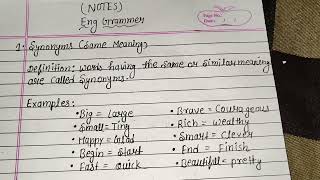 (NOTES)
Eng Grammer
Page No.
Date:
1. Synonyms (Same Meaning)
Definition: Word having the same or similar meaning
are called Synonyms.
Examples:
• Big = Large
• Brave = Courageous
• Small = Tiny
• Rich = Wealthy
• Happy = Glad
• Smart = Clever
• Begin = Start
• End = Finish
• Fast = Quick
• Beautiful = pretty